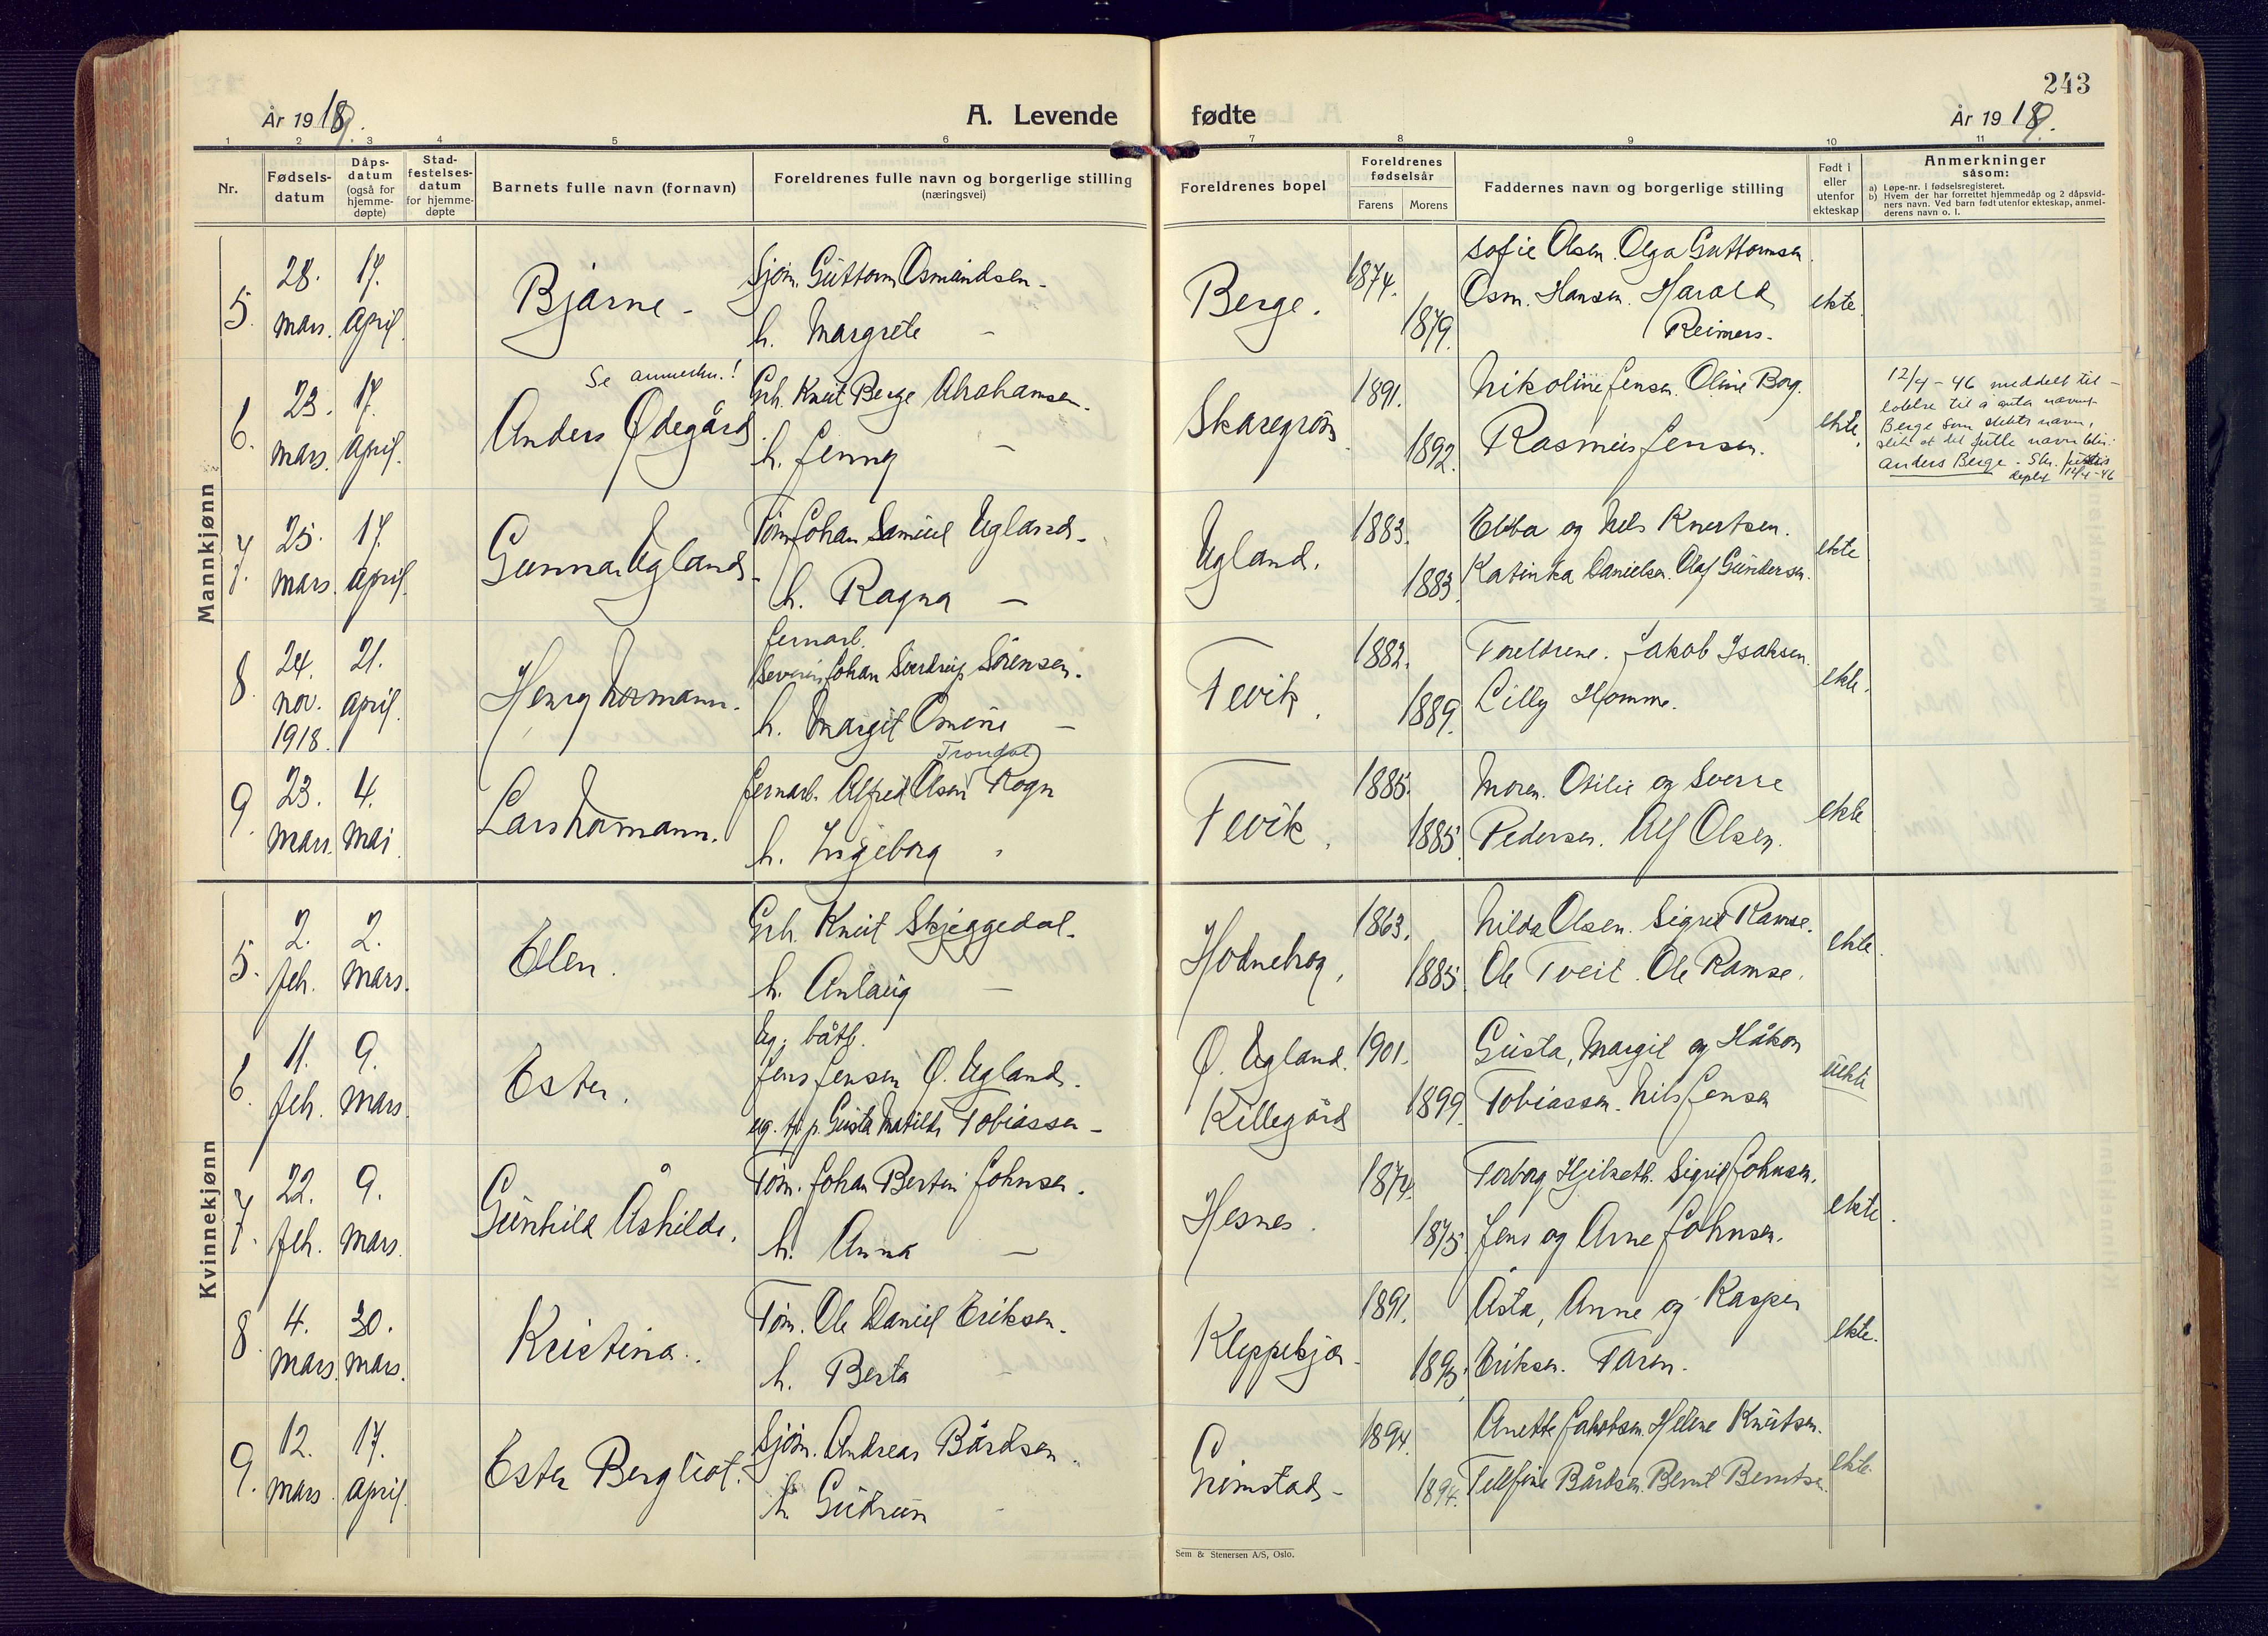 243
År 1919.
A. Levende
fødte
År 1919.
1 2 3 4 5 6 7 8 9 10 11
Nr.
Fødsels-
datum
Dåps-
datum
(også for
hjemme-
døpte)
Stad-
festelses-
datum
for hjemme-
døpte
Barnets fulle navn (fornavn)
Foreldrenes fulle navn og borgerlige stilling
(næringsvei)
Foreldrenes bopel
Foreldrenes
fødselsår
Farens Morens
Faddernes navn og borgerlige stilling
Født i
eller
utenfor
ekteskap
Anmerkninger
såsom:
a) Løpe-nr. i fødselsregisteret.
b) Hvem der har forrettet hjemmedåp og 2 dåpsvid-
ners navn. Ved barn født utenfor ekteskap, anmel-
derens navn o. l.
Mannkjønn
5. 28. mars. 17. april. Bjarne -
Sjøm. Guttorm Osmundsen -
h. Margrete -
Berge. 1874. 1879.
Sofie Olsen. Olga Guttormsen.
Osm. Hansen. Harald
Reimers.
ekte.
6. 23. mars. 17. april.
Se anmerkn.!
Anders Ødegård.
Grb. Knut Berge Abrahamsen.
h. Jenny -
1891. 1892.
Nikoline Jensen. Oline Borg.
Rasmus Jensen.
ekte.
12/4-46 meddelt til-
latelse til å anta navnet
Berge som slekts navn,
slik at det fulle navn blir:
Anders Berge.
7. 25. mars. 17. april. Gunnar Ugland.
Tøm. Johan Samuel Ugland -
h. Ragna -
Ugland. 1883. 1883.
Ebba og Nels Knertsen.
Katinka Danielsen. Olaf Gundersen.
ekte
8. 24. nov. 1918. 21. april. Henry Normann.
Jernarb.
Severin Johan Sverdrup Sørensen.
h. Margit Omine -
Fevik. 1882. 1889.
Foreldrene. Jakob Isaksen.
Lilly Homme.
ekte.
9. 23. mars. 4. mai. Lars Normann.
Trondal
Jernarb. Alfred Olsen Rogn
h. Ingeborg
Fevik. 1885. 1885.
Moren. Otilie og Sverre
Pedersen. Alf Olsen.
ekte
Kvinnekjønn
5. 2. feb. 2. mars. Elen.
Grb. Knut Skjeggedal.
h. Anlaug -
1863. 1885.
Nilda Olsen. Sigrid Ramse.
Ole Tveit. Ole Ramse.
ekte.
6. 11. feb. 9. mars. Ester.
Ug. båtb.
Jens Jensen Ø. Ugland.
ug. tj. p. Gusta Matilde Tobiassen -
Ø. Ugland. 1901.
Killegård 1899.
Gusta, Margit og Håkon
Tobiassen. Nils Jensen
uekte
7. 22. feb. 9. mars. Gunhild Åshilde.
Tøm. Johan Bertin Johnsen.
h. Anna -
Hesnes. 1874. 1875.
Torborg Hjilseth. Sigrid Johnsen.
Jens og Arne Johnsen.
ekte.
8. 4. mars. 30. mars. Kristina.
Tøm. Ole Daniel Eriksen.
h. Berta -
1891. 1893.
Åsta, Anne og Kasper
Eriksen. Faren.
ekte.
9. 12. mars 17. april. Ester Bergliot.
Sjøm. Andreas Bårdsen.
h. Gudrun -
Grimstad - 1894. 1894.
Anette Jakobsen. Helene Knutsen.
Telefine Bårdsen. Bernt Berntsen.
ekte.
Sem & Stenersen A/S, Oslo.